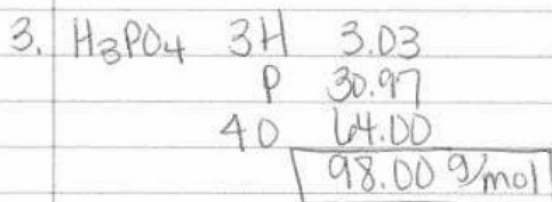 3. H₃PO₄ 3H 3.03
P 30.97
4O 64.00
98.00 g/mol